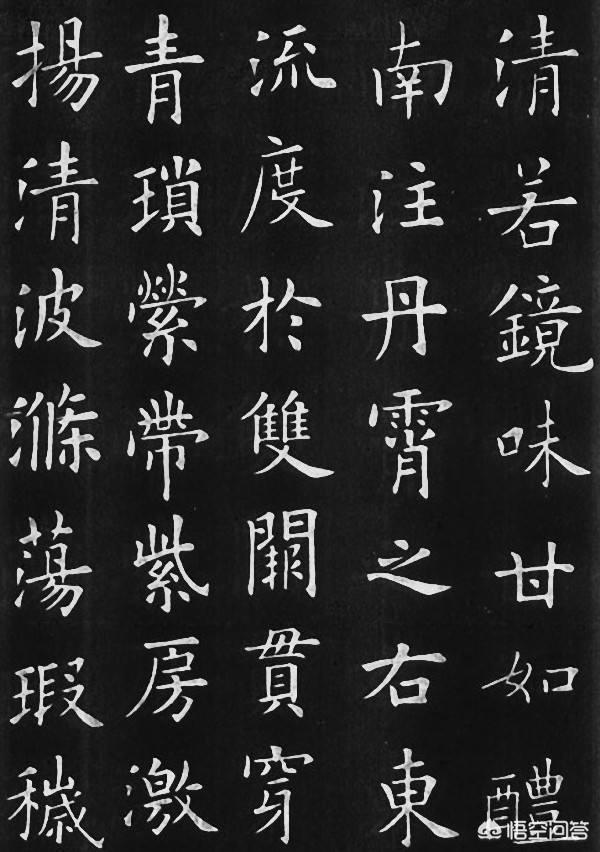 清若鏡味甘如醴
南注丹霄之右東
流度於雙闕貫穿
青瑣縈帶紫房激
揚清波滌蕩瑕穢
悟空问答